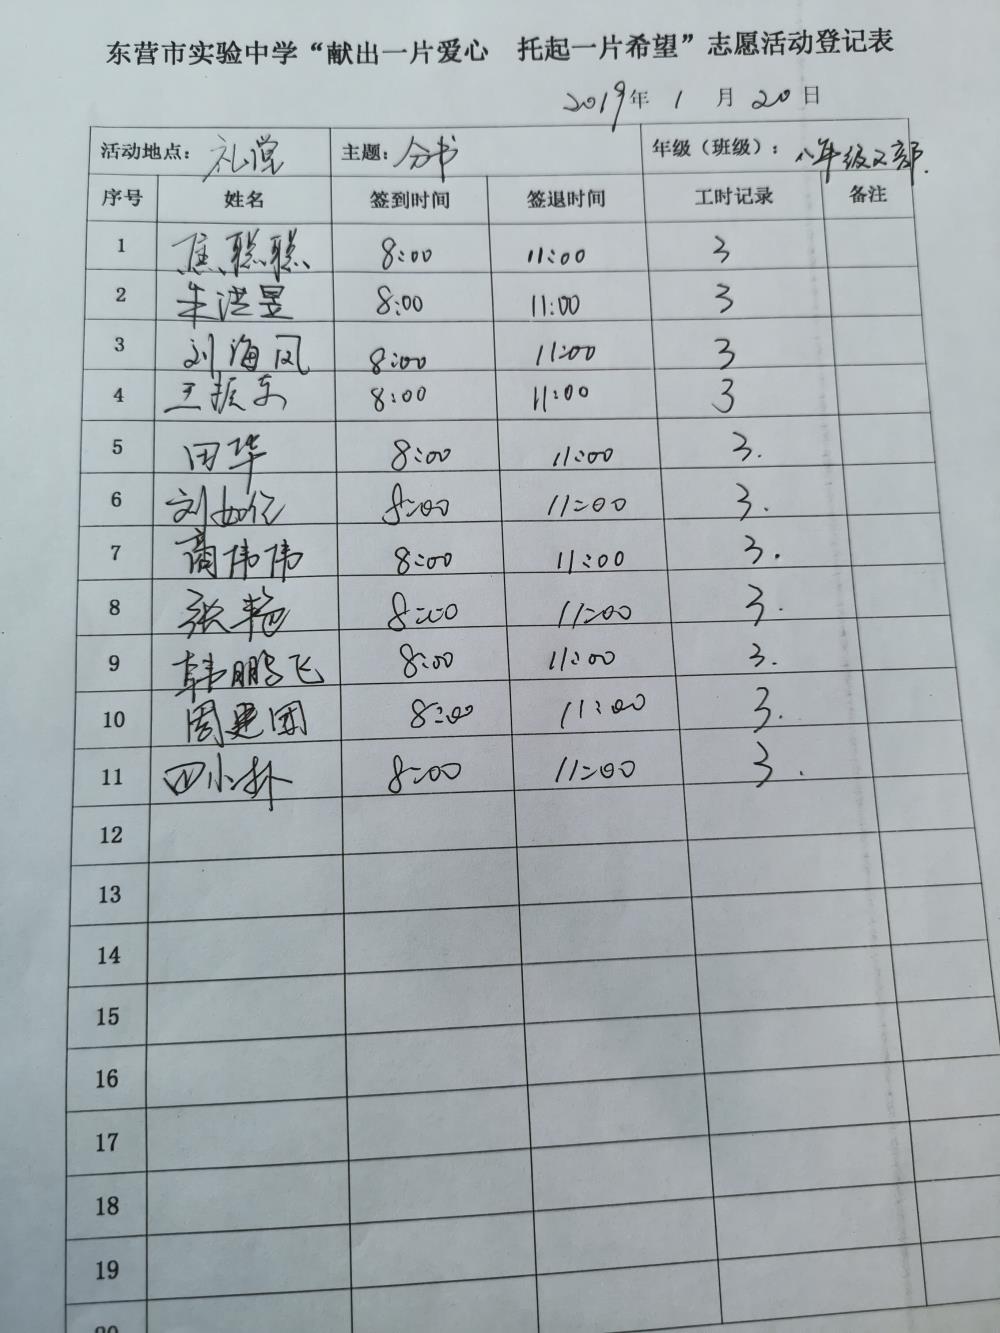 东营市实验中学“献出一片爱心 托起一片希望”志愿活动登记表
2019年 1 月 20 日
活动地点: 礼堂 主题: 分书 年级(班级): 八年级又部.
序号 姓名 签到时间 签退时间 工时记录 备注
1 焦聪聪 8:00 11:00 3
2 朱洪昱 8:00 11:00 3
3 刘海风 8:00 11:00 3
4 王振东 8:00 11:00 3
5 田华 8:00 11:00 3.
6 刘如亿 8:00 11:00 3.
7 商伟伟 8:00 11:00 3.
8 张艳 8:00 11:00 3.
9 韩鹏飞 8:00 11:00 3.
10 周建国 8:00 11:00 3.
11 8:00 11:00 3.
12
13
14
15
16
17
18
19
20